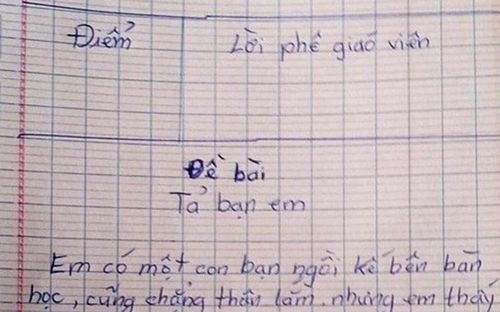 Điểm
Lời phê giáo viên
Đề bài
Tả bạn em
Em có một con bạn ngồi kế bên bàn
học, cũng chẳng thân lắm, nhưng em thấy